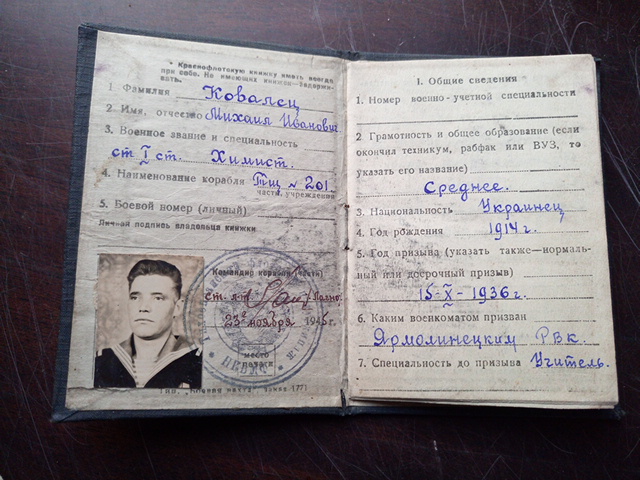 * Краснофлотскую книжку иметь всегда
при себе. Не имеющих книжки задержи-
вать.
1 Фамилия Ковалец
2 Имя, отчество Михаил Иванович
3. Военное звание и специальность
ст I ст. Химист.
4. Наименование корабля Тщ № 201
часть учреждения
5. Боевой номер (личный)
Личная подпись владельца книжки
Командир корабля (части)
ст. л-т
23 ноября 194
место
печати
I. Общие сведения
1. Номер военно-учетной специальности
2 Грамотность и общее образование (если
окончил техникум, рабфак или ВУЗ, то
указать его название)
Среднее.
3. Национальность Украинец
4. Год рождения 1914 г.
5. Год призыва (указать также—нормаль-
ный или досрочный призыв)
15-X-1936 г.
6. Каким военкоматом призван
Ярмолинецким РВК.
7. Специальность до призыва Учитель.